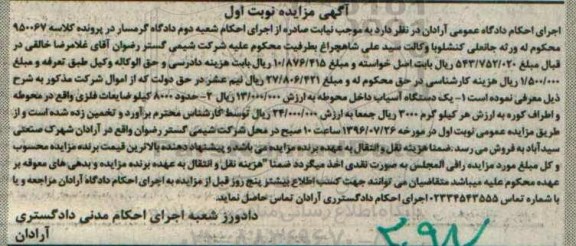 آگهی مزایده نوبت اول
اجرای احکام دادگاه عمومی آرادان در نظر دارد به موجب نیابت صادره از اجرای احکام شعبه دوم دادگاه گرمسار در پرونده کلاسه ۹۵۰۰۶۷
محکوم له ورثه جانعلی کنشلویا وکالت سید علی شاهچراغ بطرفیت محکوم علیه شرکت شیمی گستر رضوان آقای غلامرضا خالقی در
قبال مبلغ ۵۴۳/۷۵۲/۰۲۰ ریال بابت اصل خواسته و مبلغ ۱۰/۸۷۶/۴۱۵ ریال بابت هزینه دادرسی و حق الوکاله وکیل طبق تعرفه و مبلغ
۱/۵۰۰/۰۰۰ ریال هزینه کارشناسی در حق محکوم له و مبلغ ۲۷/۸۰۶/۴۲۱ ریال نیم عشر در حق دولت که از اموال شرکت مذکور به شرح
ذیل معرفی نموده است ۱- یک دستگاه آسیاب داخل محوطه به ارزش ۱۳/۰۰۰/۰۰۰ ریال ۲- حدود ۸۰۰۰ کیلو ضایعات فلزی واقع در محوطه
و اطراف کوره به ارزش هر کیلو گرم ۳۰۰۰ ریال جمعا به ارزش ۲۴/۰۰۰/۰۰۰ ریال توسط کارشناس محترم برآورد و تخمین زده شده است و از
طریق مزایده عمومی نوبت اول در مورخه ۱۳۹۶/۰۷/۲۶ ساعت ۱۰ صبح در محل شرکت شیمی گستر رضوان واقع در آرادان شهرک صنعتی
سیدآباد به فروش می رسد.ضمنا هزینه نقل و انتقال به عهده برنده مزایده می باشد و پیشنهاد دهنده بالاترین قیمت برنده مزایده محسوب
و کل مبلغ مورد مزایده رافی المجلس به صورت نقدی اخذ میگردد ضمنا "هزینه نقل و انتقال به عهده برنده مزایده و بدهی های معوقه بر
عهده محکوم علیه میباشد متقاضیان می توانند جهت کسب اطلاع بیشتر پنج روز قبل از مزایده به اجرای احکام دادگاه آرادان مراجعه و یا
با شماره تماس ۰۲۳۳۴۵۴۳۵۵۵ اجرای احکام دادگستری آرادان تماس حاصل نمایند.
دادورز شعبه اجرای احکام مدنی دادگستری
آرادان